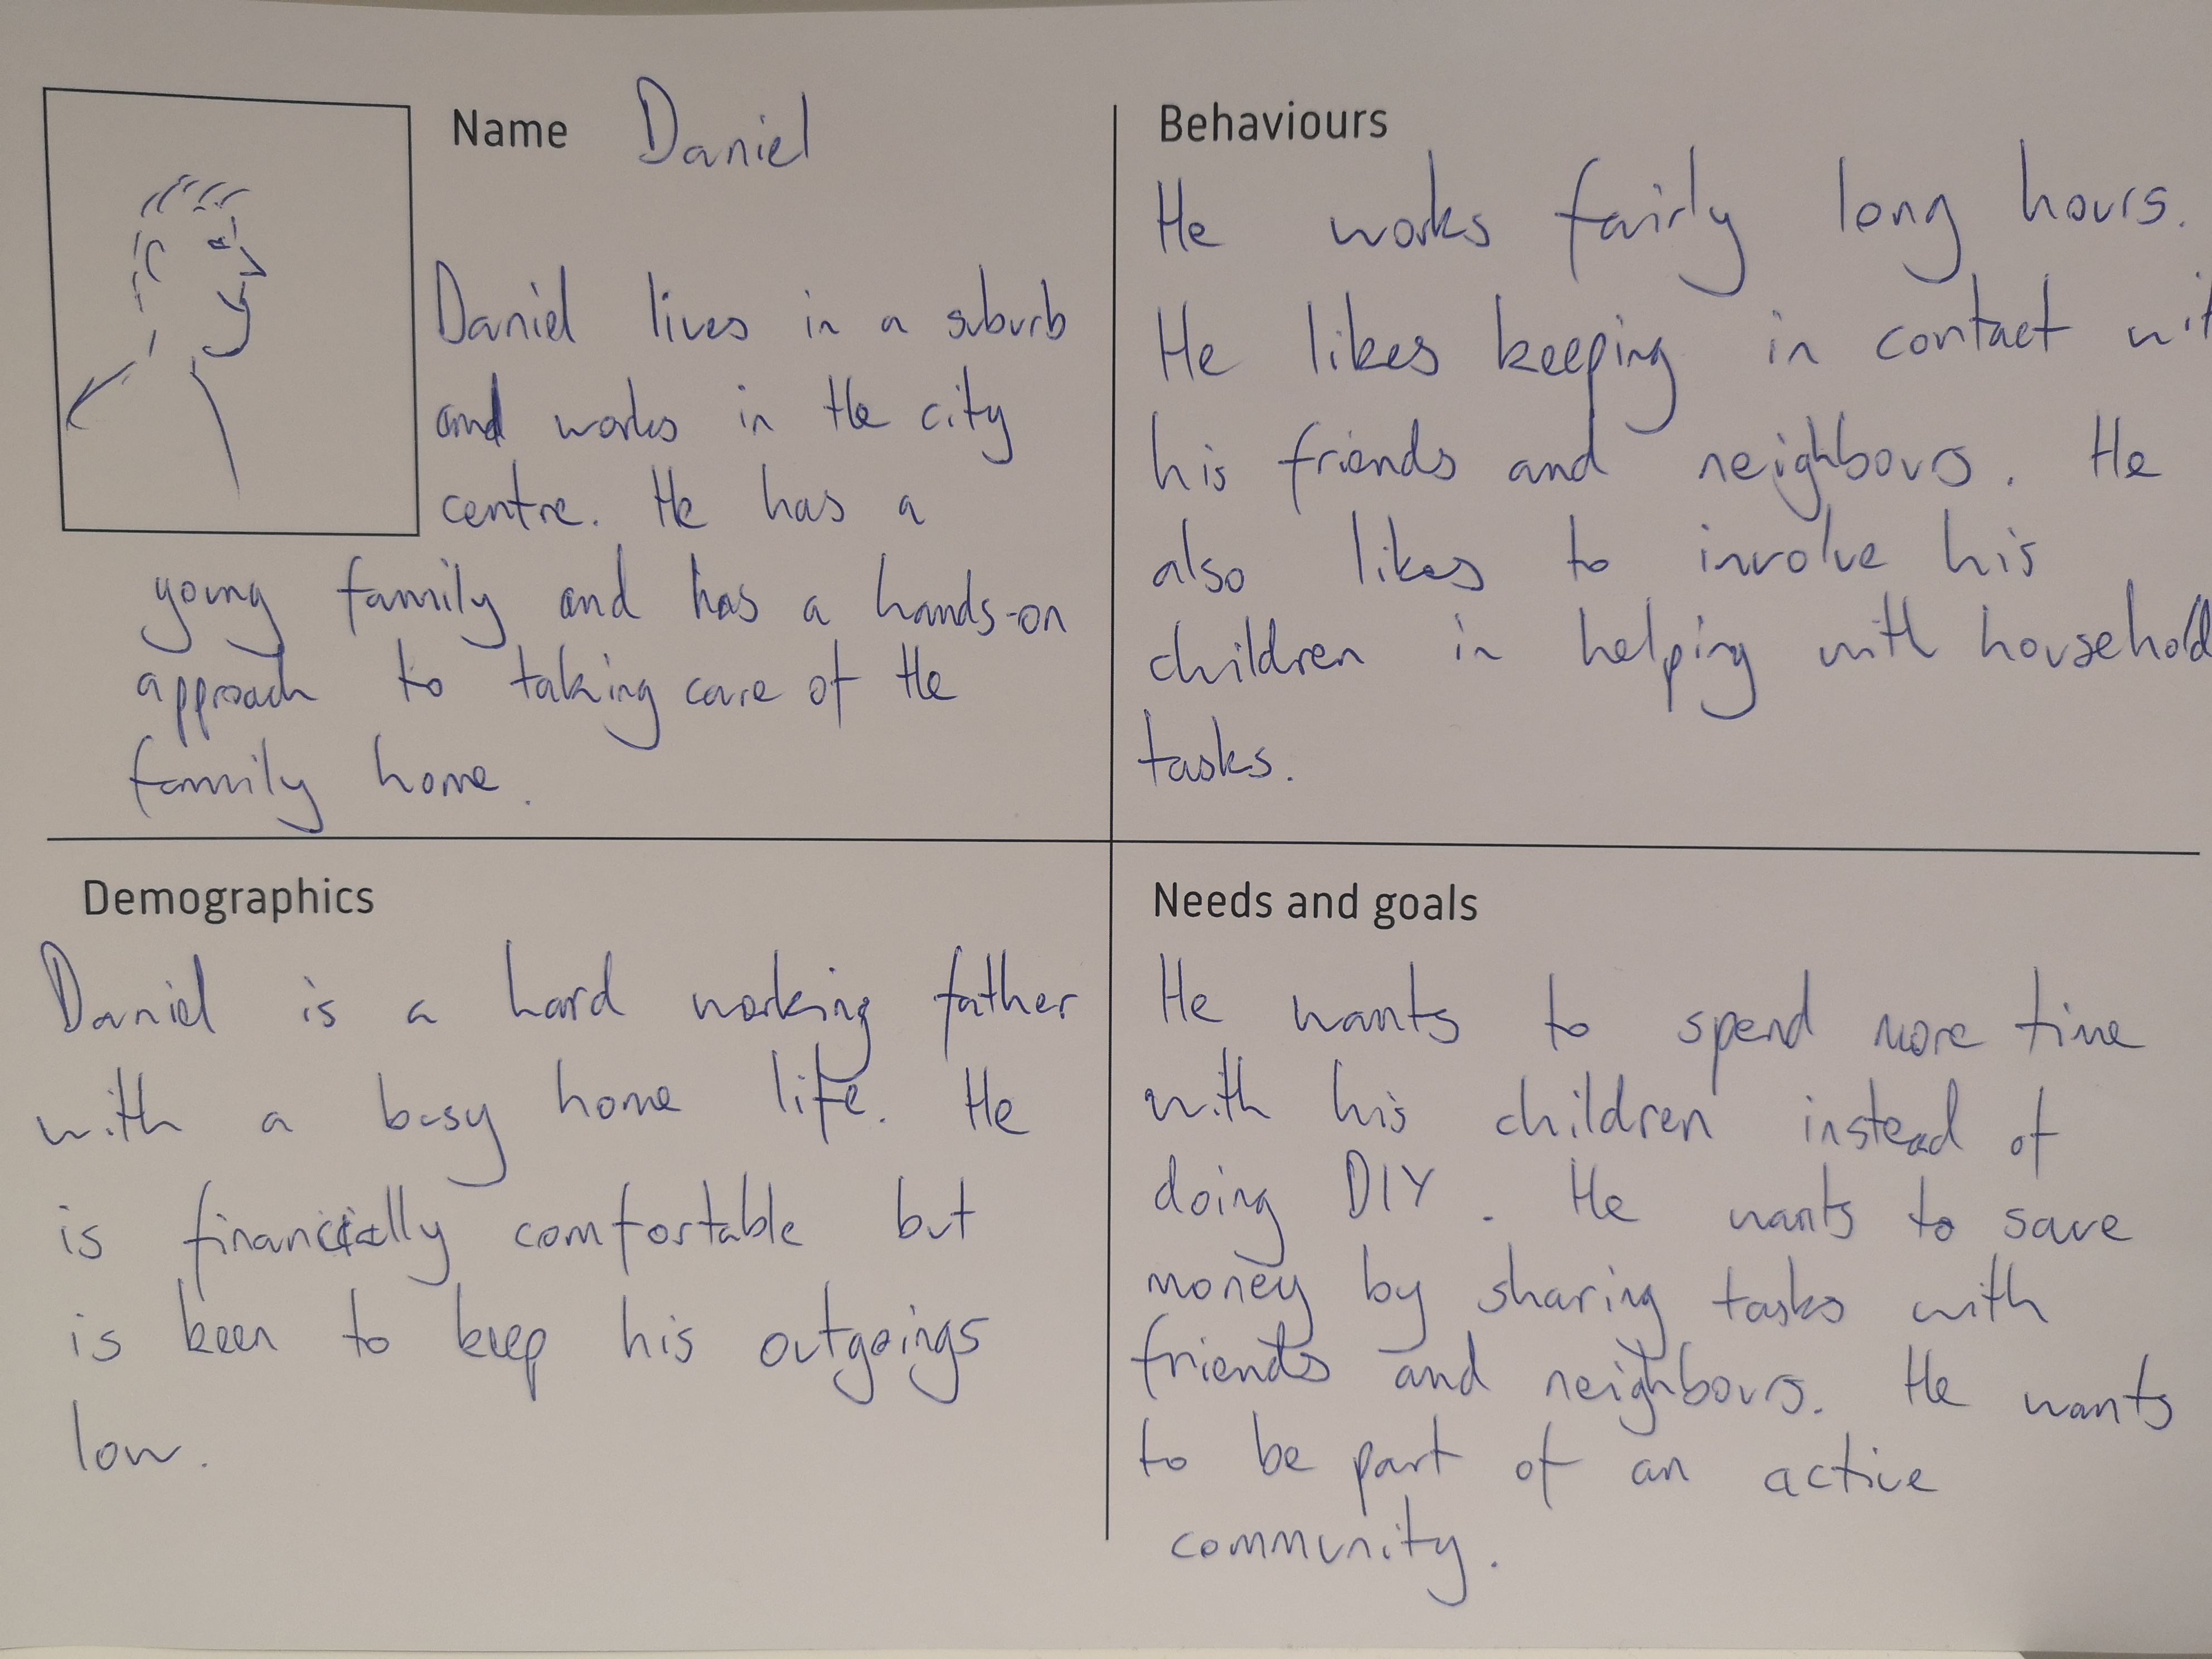 Name Daniel
Daniel lives in a suburb
and works in the city
centre. He has a
young family and has a hands-on
approach to taking care of the
family home.
Behaviours
He works fairly long hours.
He likes keeping in contact wit
his friends and neighbours. He
also likes to involve his
children in helping with household
tasks.
Demographics
Daniel is a hard working father
with a busy home life. He
is financially comfortable but
is keen to keep his outgoings
low.
Needs and goals
He wants to spend more time
with his children instead of
doing DIY. He wants to save
money by sharing tasks with
friends and neighbours. He wants
to be part of an active
community.